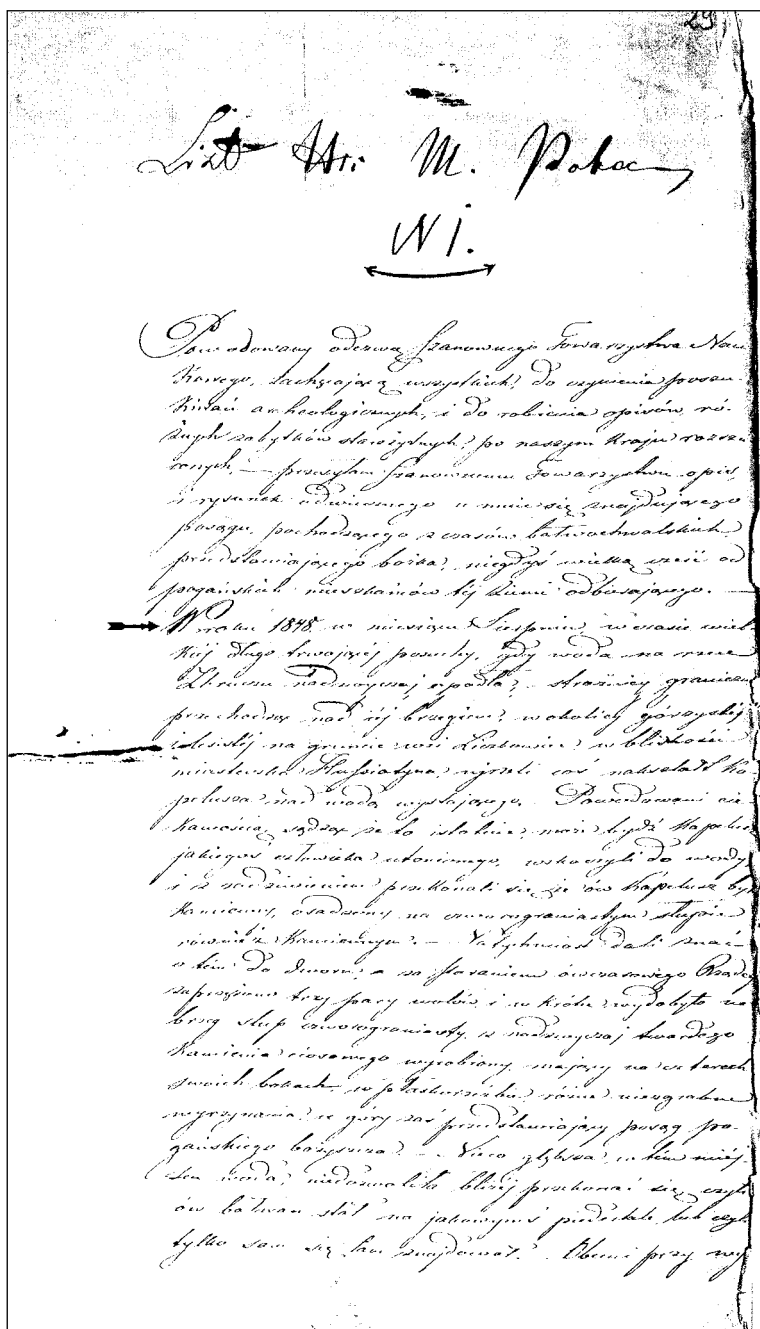 29
List Hr: M. Potoc
N 1.
Powodowany odezwą Szanownego Towarzystwa Nau
kowego, zachęcającą wszystkich, do czynienia poszu-
kiwań archeologicznych, i do robienia opisów ró-
żnych zabytków starożytnych, po naszym kraju rozrzu
conych, — przesyłam Szanownemu Towarzystwu opis,
i rysunek odwiecznego u mnie się znajdującego
posągu, pochodzącego z czasów bałwochwalskich,
przedstawiającego bożka, niegdyś wielką cześć od
pogańskich mieszkańców tej ziemi odbierającego. —
W roku 1848 w miesiącu Sierpniu, w czasie wiel
kiéj długo trwającéj posuchy, gdy woda na rzece
Zbruczu nadzwyczaj opadła, strażnicy graniczni
przechodząc nad jéj brzegiem, w okolicy górzystéj
i lesistéj na gruncie wsi Liczkowiec, w bliskości
miasteczka Hussiatyna, ujrzeli coś nakształt ka
pelusza nad wodą wystającego. Powodowani cie
kawością, sądząc że to istotnie może bydź kapelusz
jakiegoś człowieka utonionego, wskoczyli do wody,
i z zadziwieniem przekonali się, że ów kapelusz był
kamienny, osadzony na czworograniastym słupie
również kamiennym. — Natychmiast dali znać
o tém do dworu, a za staraniem ówczasowego Rządcy
zaprzężono trzy pary wołów, i wkrótce wydobyto na
brzeg słup czworograniasty, z nadzwyczaj twardego
kamienia ciosowego wyrobiony, mający na czterech
swoich bokach, w płaskorzeźbie, różne niezgrabne
wyrzynania, u góry zaś przedstawiający posąg po-
gańskiego bożyszcza. — Nieco głębsza w tém miéj-
scu woda, niedozwoliła bliżéj przekonać się, czyli
ów bałwan stał na jakowymś piedestale, lub czyli
tylko sam się tam znajdował. Obecni przy wy